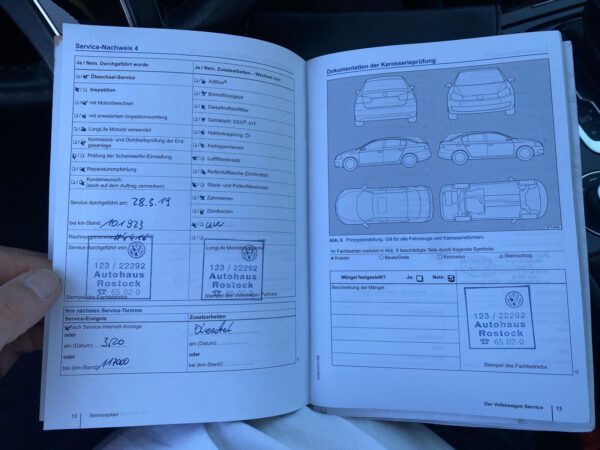 Service-Nachweis 4
Ja / Nein. Durchgeführt wurde:
❏ / ❏ Ölwechsel-Service
Inspektion
mit Motorölwechsel
mit erweitertem Inspektionsumfang
LongLife Motoröl verwendet
Korrosions- und Dichtheitsprüfung der Erdgasanlage
Prüfung der Scheinwerfer-Einstellung
Reparaturempfehlung
Kundenwunsch
(auch auf dem Auftrag vermerken)
Service durchgeführt am: 28.3.19
bei km-Stand: 101923
Rechnungsnummer
Service durchgeführt von
123 / 22292
Autohaus
Rostock
☎ 65 02-0
Stempel des Fachbetriebs
Ja / Nein. Zusatzarbeiten – Wechsel von:
AdBlue®
Bremsflüssigkeit
Dieselkraftstofffilter
Getriebeöl: DSG®, ATF
Haldexkupplung, Öl
Keilrippenriemen
Luftfiltereinsatz
Reifenfüllflasche (Dichtmittel)
Staub- und Pollenfiltereinsatz
Zahnriemen
Zündkerzen
LongLife Mo
123 / 22292
Autohaus
Rostock
☎ 65 02-0
Stempel des Volkswagen Partners
Ihre nächsten Service-Termine
Service-Ereignis
nach Service-Intervall-Anzeige
oder
am (Datum): 3/20
oder
bei (km-Stand): 117000
Zusatzarbeiten:
oder
am (Datum):
oder
bei (km-Stand):
12 Serviceplan
Dokumentation der Karosserieprüfung
Abb. 6 Prinzipdarstellung. Gilt für alle Fahrzeuge und Karosserieformen.
Ihr Fachbetrieb markiert in Abb. 6 beschädigte Teile durch folgende Symbole:
Kratzer Beule/Delle Korrosion Steinschlag
Mängel festgestellt? Ja: Nein:
Beschreibung der Mängel:
123 / 22292
Autohaus
Rostock
☎ 65 02-0
Stempel des Fachbetriebs
Der Volkswagen Service 13